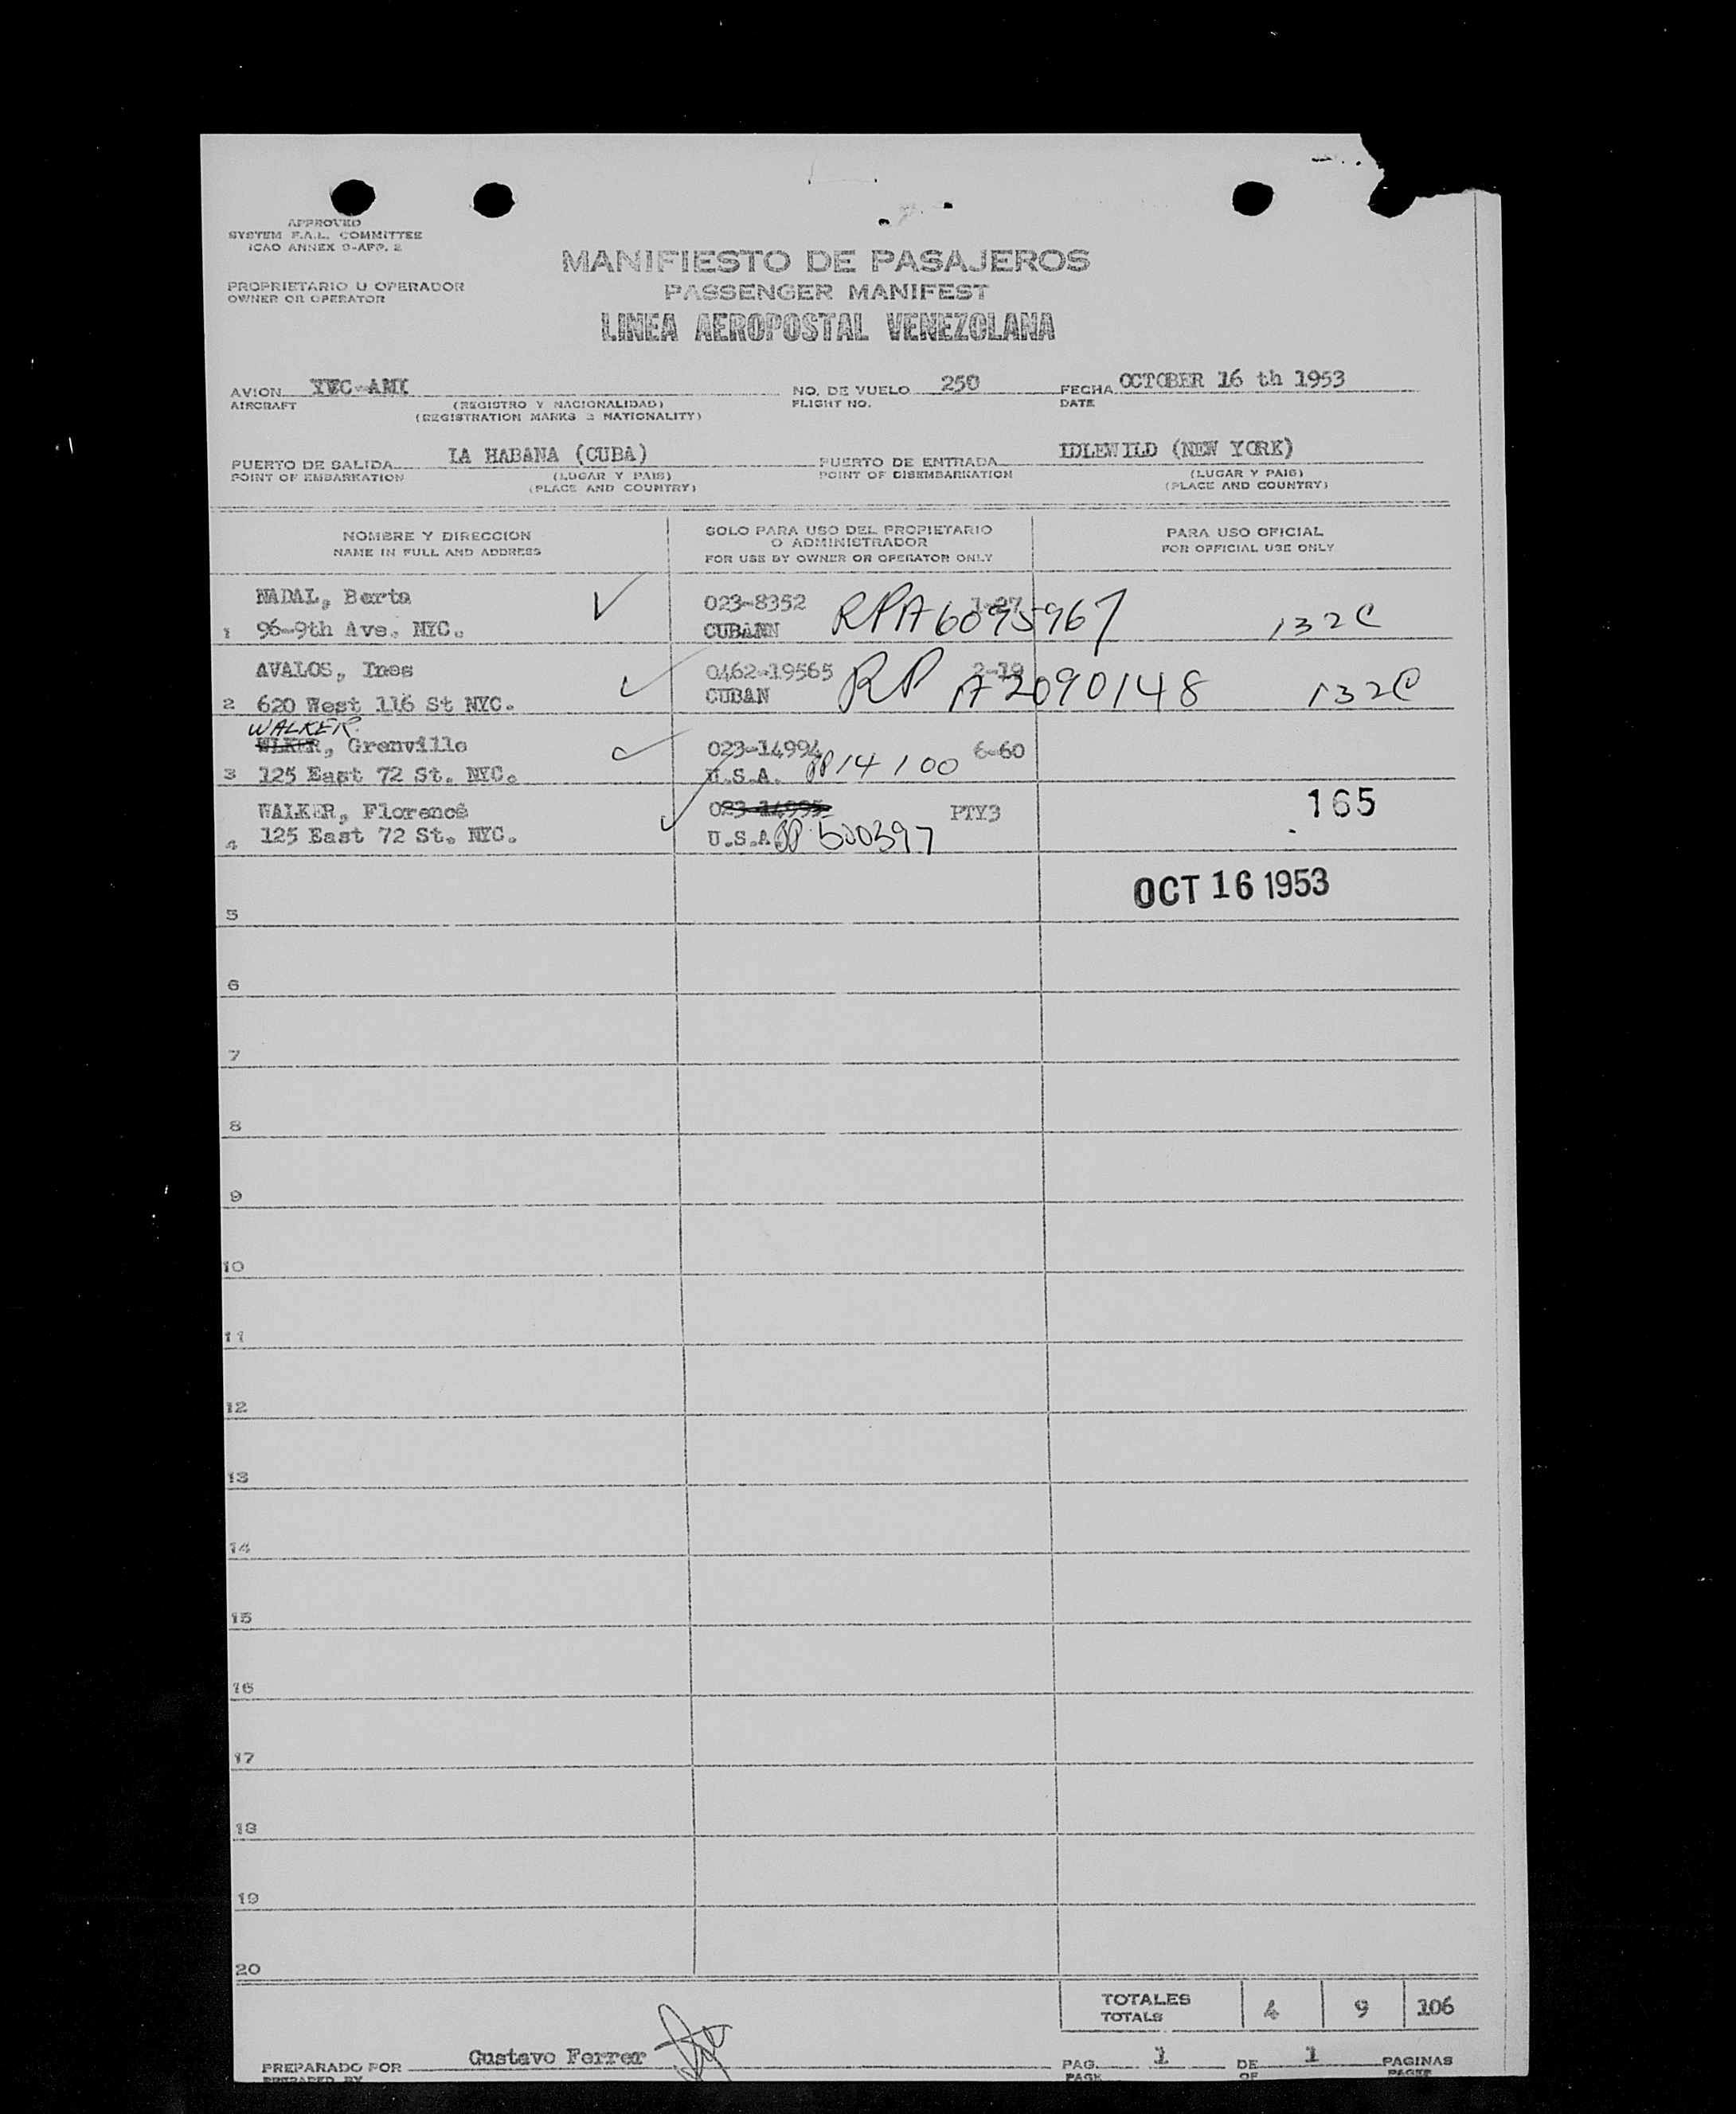 APPROVED
SYSTEM F.A.L. COMMITTEE
ICAO ANNEX 9-APP. 2
MANIFIESTO DE PASAJEROS
PROPRIETARIO U OPERADOR
OWNER OR OPERATOR
PASSENGER MANIFEST
LINEA AEROPOSTAL VENEZOLANA
AVION YVC-AMX NO. DE VUELO 250 FECHA OCTOBER 16 th 1953
AIRCRAFT (REGISTRO Y NACIONALIDAD) FLIGHT NO. DATE
(REGISTRATION MARKS & NATIONALITY)
PUERTO DE SALIDA LA HABANA (CUBA) PUERTO DE ENTRADA IDLEWILD (NEW YORK)
POINT OF EMBARKATION (LUGAR Y PAIS) POINT OF DISEMBARKATION (LUGAR Y PAIS)
(PLACE AND COUNTRY) (PLACE AND COUNTRY)
NOMBRE Y DIRECCION SOLO PARA USO DEL PROPIETARIO O ADMINISTRADOR PARA USO OFICIAL
NAME IN FULL AND ADDRESS FOR USE BY OWNER OR OPERATOR ONLY FOR OFFICIAL USE ONLY
NADAL, Berta 023-8352 1-27
1 96-9th Ave. NYC. CUBANN RPA6095967 132C
AVALOS, Ines 0462-19565 2-19
2 620 West 116 St NYC. CUBAN RP A2090148 132C
WALKER
WLKER, Grenville 023-14994 6-60
3 125 East 72 St. NYC. U.S.A. PP 14100
WALKER, Florence 023-14995 PTY3 165
4 125 East 72 St. NYC. U.S.A PP 500397
OCT 16 1953
5
6
7
8
9
10
11
12
13
14
15
16
17
18
19
20
TOTALES 4 9 106
TOTALS
PREPARADO POR Gustavo Ferrer PAG. 1 DE 1 PAGINAS
PREPARED BY PAGE OF PAGES